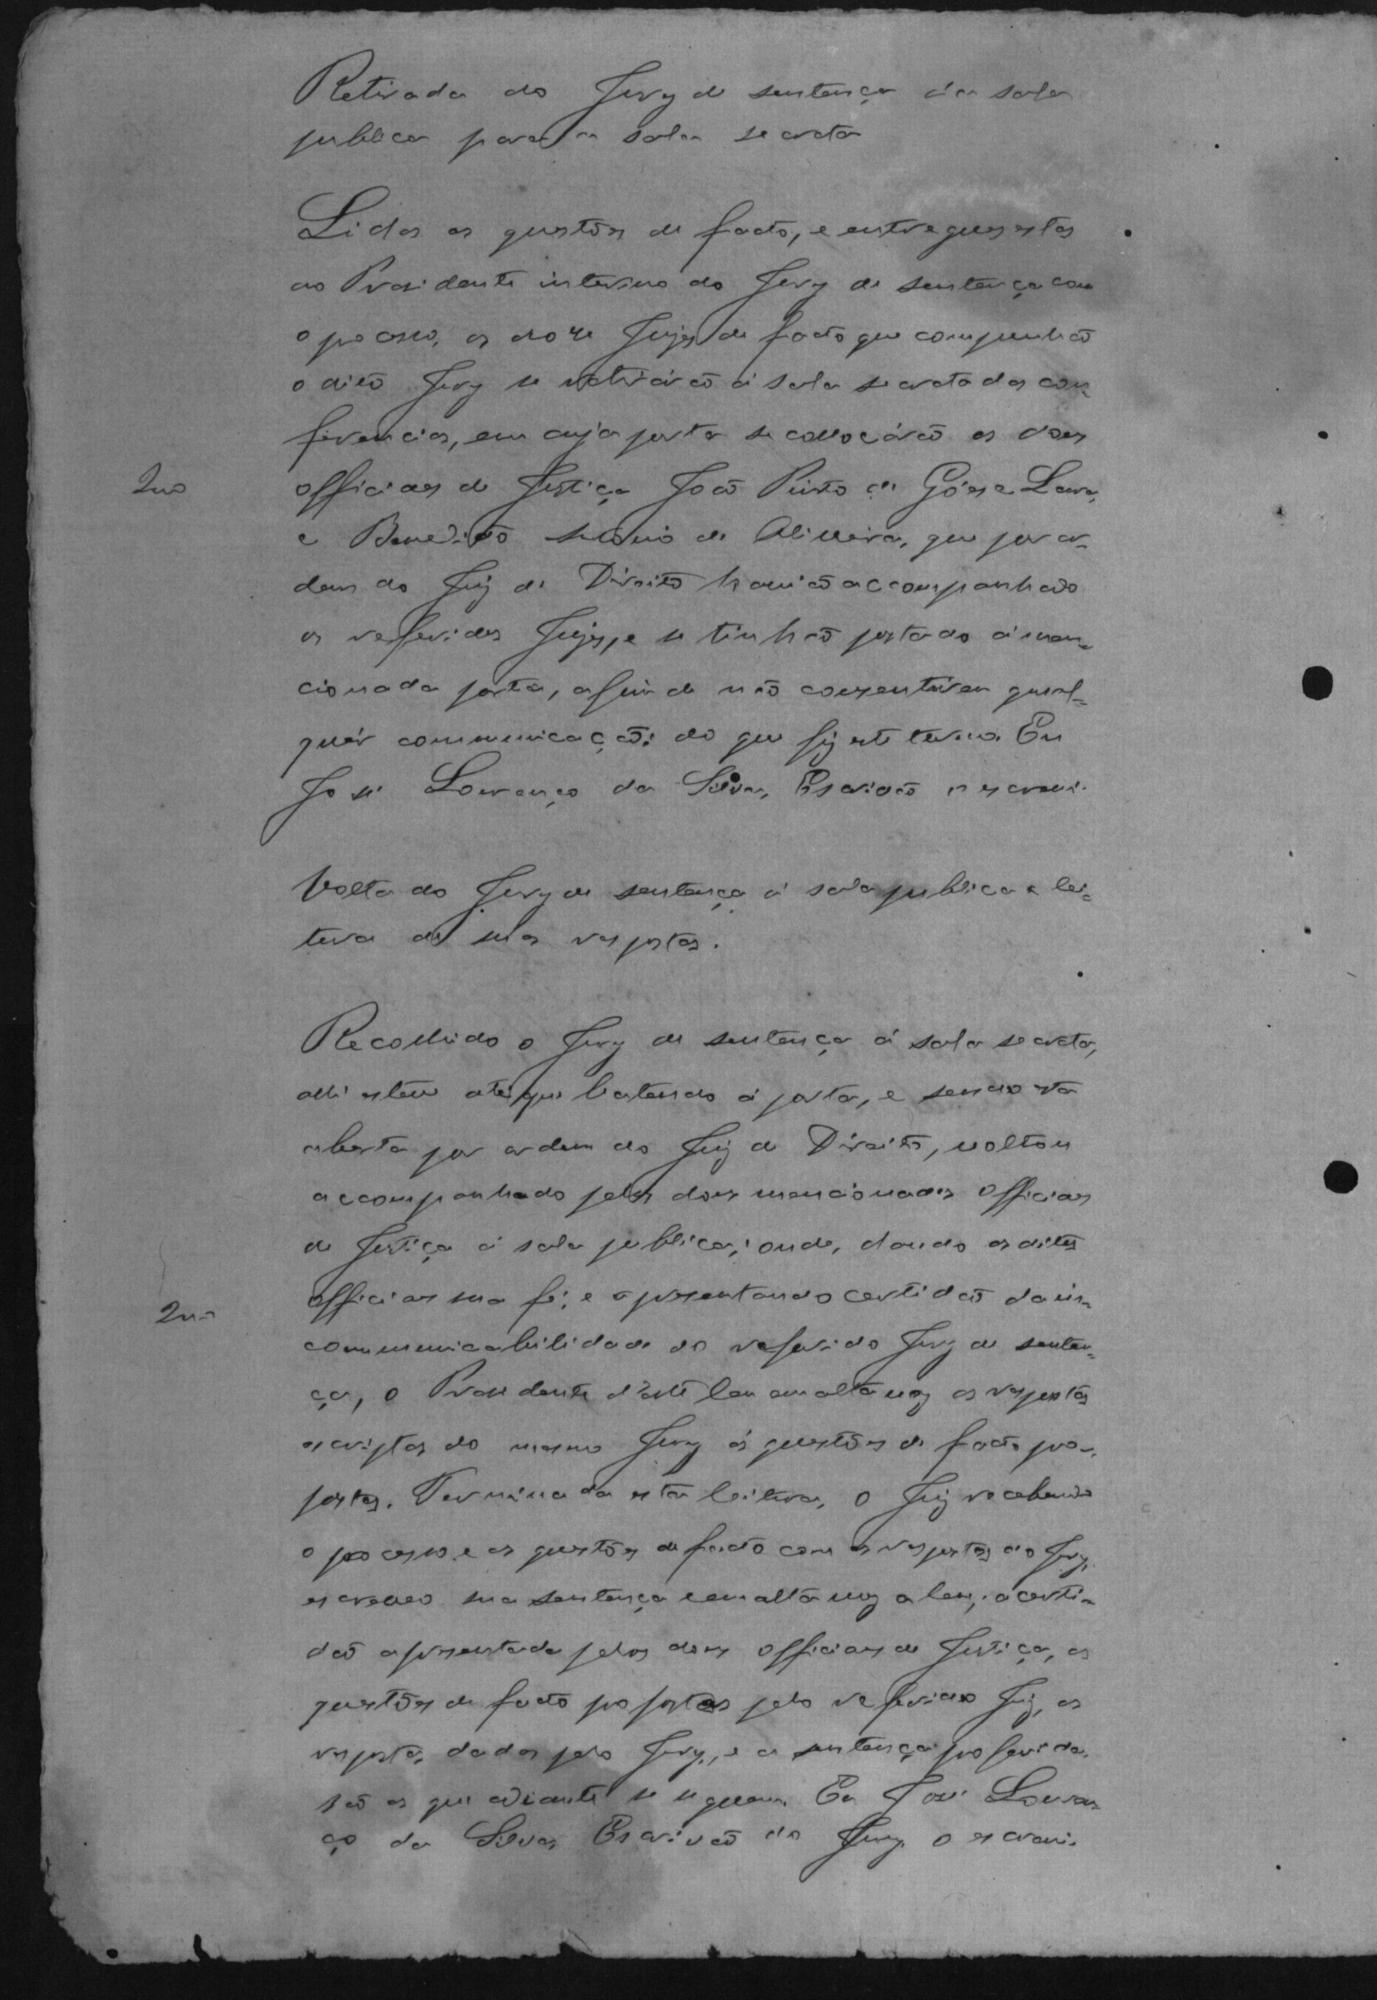 Retirada do Jury de sentença da sala
publica para a sala secreta
Lidas as questões de facto, e entregues estas
ao Presidente interino do Jury de sentença com
o pocesso, os doze Juizes de facto que compunhaõ
o dito Jury se retiráraõ á sala secreta das con-
ferencias, em cuja porta se collocáraõ os dous
officiaes de Justiça Joaõ Pinto de Góes e Lara,
e Benedito de Oliveira, que por or-
dem do Juiz de Direito haviaõ accompanhado
os referidos Juizes, e se tinhaõ postado á men-
cionada porta, afim de naõ consentirem qual-
quér communicaçaõ: do que fiz este termo. Eu
José Lourenço da Silva, Escrivaõ o escrevi.
Volta do Jury de sentença á sala publica e lei-
tura de suas respostas.
Recolhido o Jury de sentença á sala secreta,
alli esteve até que batendo á porta, e sendo esta
aberta por ordem do Juiz de Direito, voltou
accompanhado pelos dous mencionados Officiaes
de Justiça á sala publica; onde, dando os ditos
officiaes sua fé, e apresentando certidaõ da in-
communicabilidade do referido Jury de senten-
ça, o Presidente d'este leu em alta voz as respostas
escriptas do mesmo Jury ás questões de facto pro-
postas. Terminada esta leitura, o Juiz recebendo
o pocesso e as questões de facto com as respostas do Jury,
escreveo sua sentença e em alta voz a leu; a certi-
daõ apresentada pelos dous officiaes de Justiça, as
questões de facto propostas pelo referido Juiz, as
respostas dadas pelo Jury, e a sentença proferida,
saõ as que adiante se seguem. Eu José Louren-
ço da Silva, Escrivaõ do Jury o escrevi.